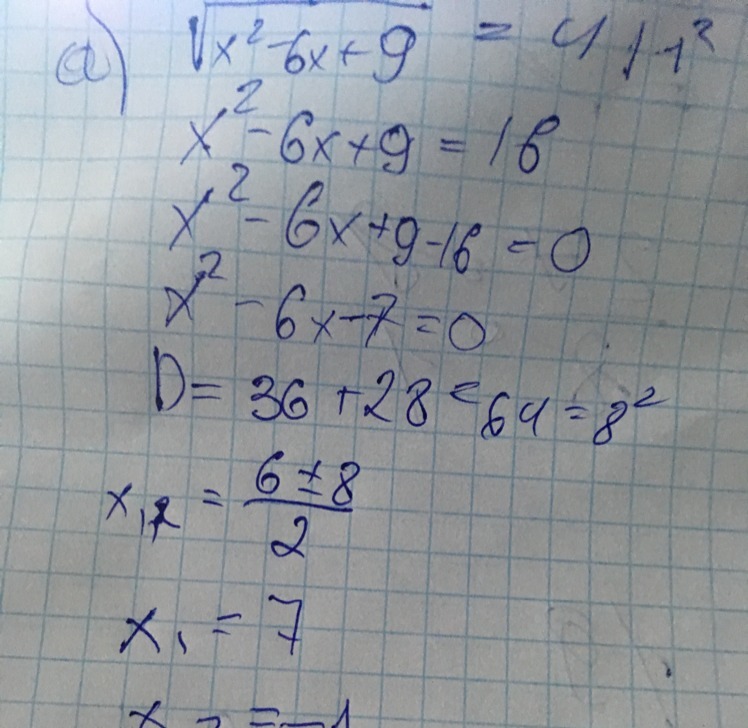 a) √x²-6x+9 = 4 |↑²
x²-6x+9 = 16
x²-6x+9-16 = 0
x²-6x-7=0
D= 36+28=64=8²
x₁,₂ = (6±8)/2
x₁ = 7
x₂ = -1